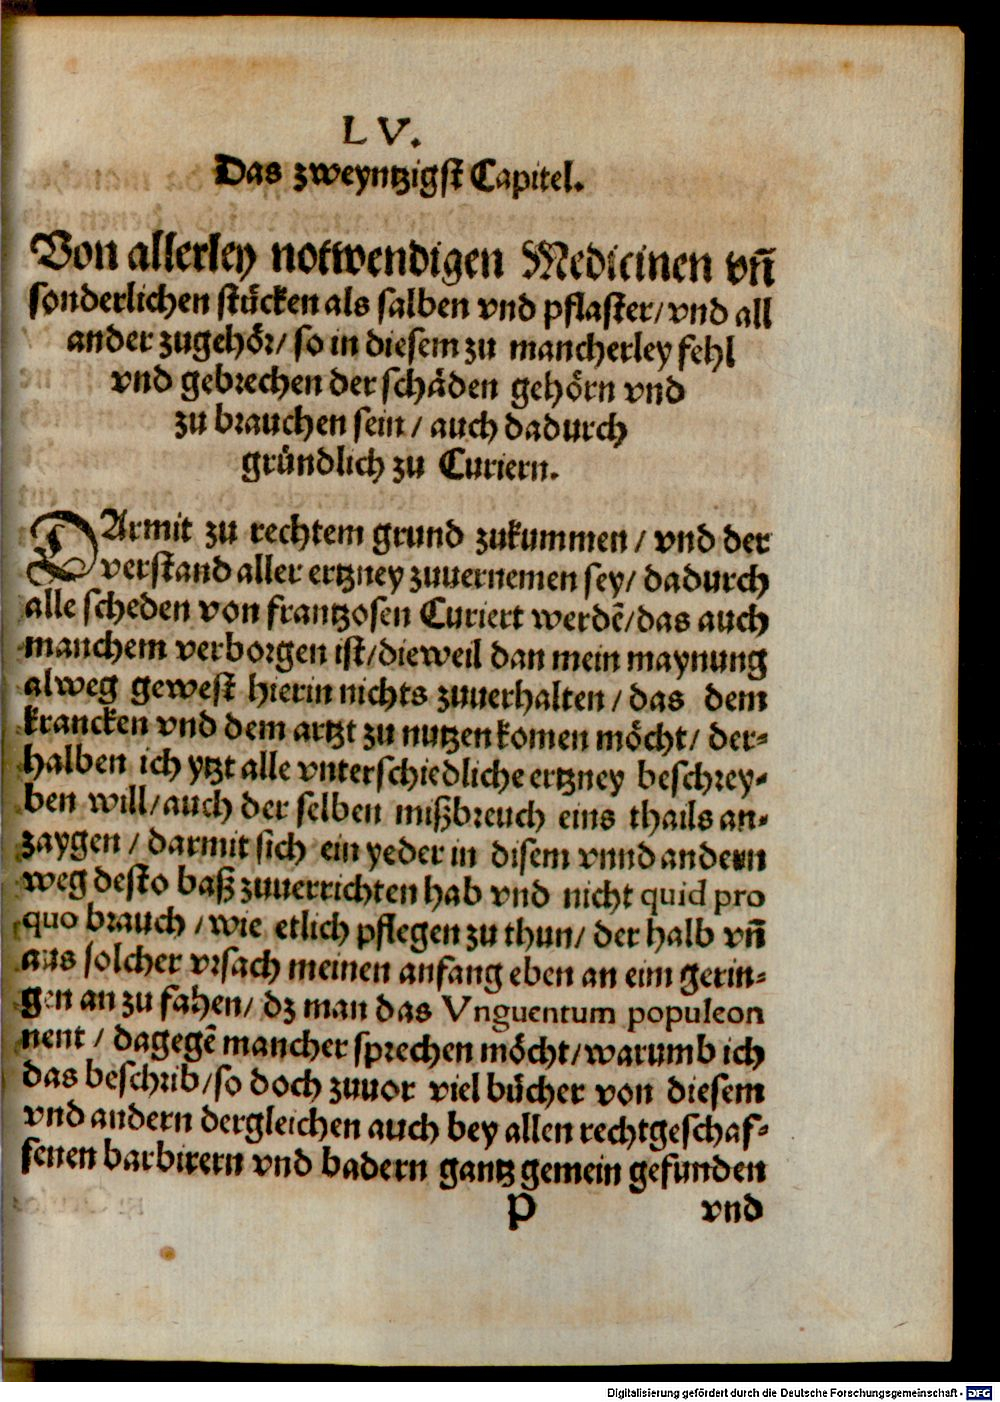 LV.
Das zweyntzigst Capitel.
Von allerley notwendigen Medicinen vñ
sonderlichen stücken als salben vnd pflaster/ vnd all
ander zugehör/ so in diesem zu mancherley fehl
vnd gebrechen der schäden gehörn vnd
zu brauchen sein/ auch dadurch
gründlich zu Curiern.
DArmit zu rechtem grund zukummen/ vnd der
verstand aller ertzney zuuernemen sey/ dadurch
alle scheden von frantzosen Curiert werdẽ/das auch
manchem verborgen ist/dieweil dan mein maynung
alweg gewest hierin nichts zuuerhalten/ das dem
krancken vnd dem artzt zu nutzen komen möcht/ der-
halben ich ytzt alle vnterschiedliche ertzney beschrey-
ben will/auch der selben mißbreuch eins thails an-
zaygen/ darmit sich ein yeder in disem vnnd andern
weg desto baß zuuerrichten hab vnd nicht quid pro
quo brauch/ wie etlich pflegen zu thun/ der halb vñ
aus solcher vrsach meinen anfang eben an eim gerin-
gen an zu fahen/ dz man das Vnguentum populeon
nent/ dagegẽ mancher sprechen möcht/warumb ich
das beschrib/so doch zuuor viel bücher von diesem
vnd andern dergleichen auch bey allen rechtgeschaf-
fenen barbirern vnd badern gantz gemein gefunden
P vnd
Digitalisierung gefördert durch die Deutsche Forschungsgemeinschaft - DFG